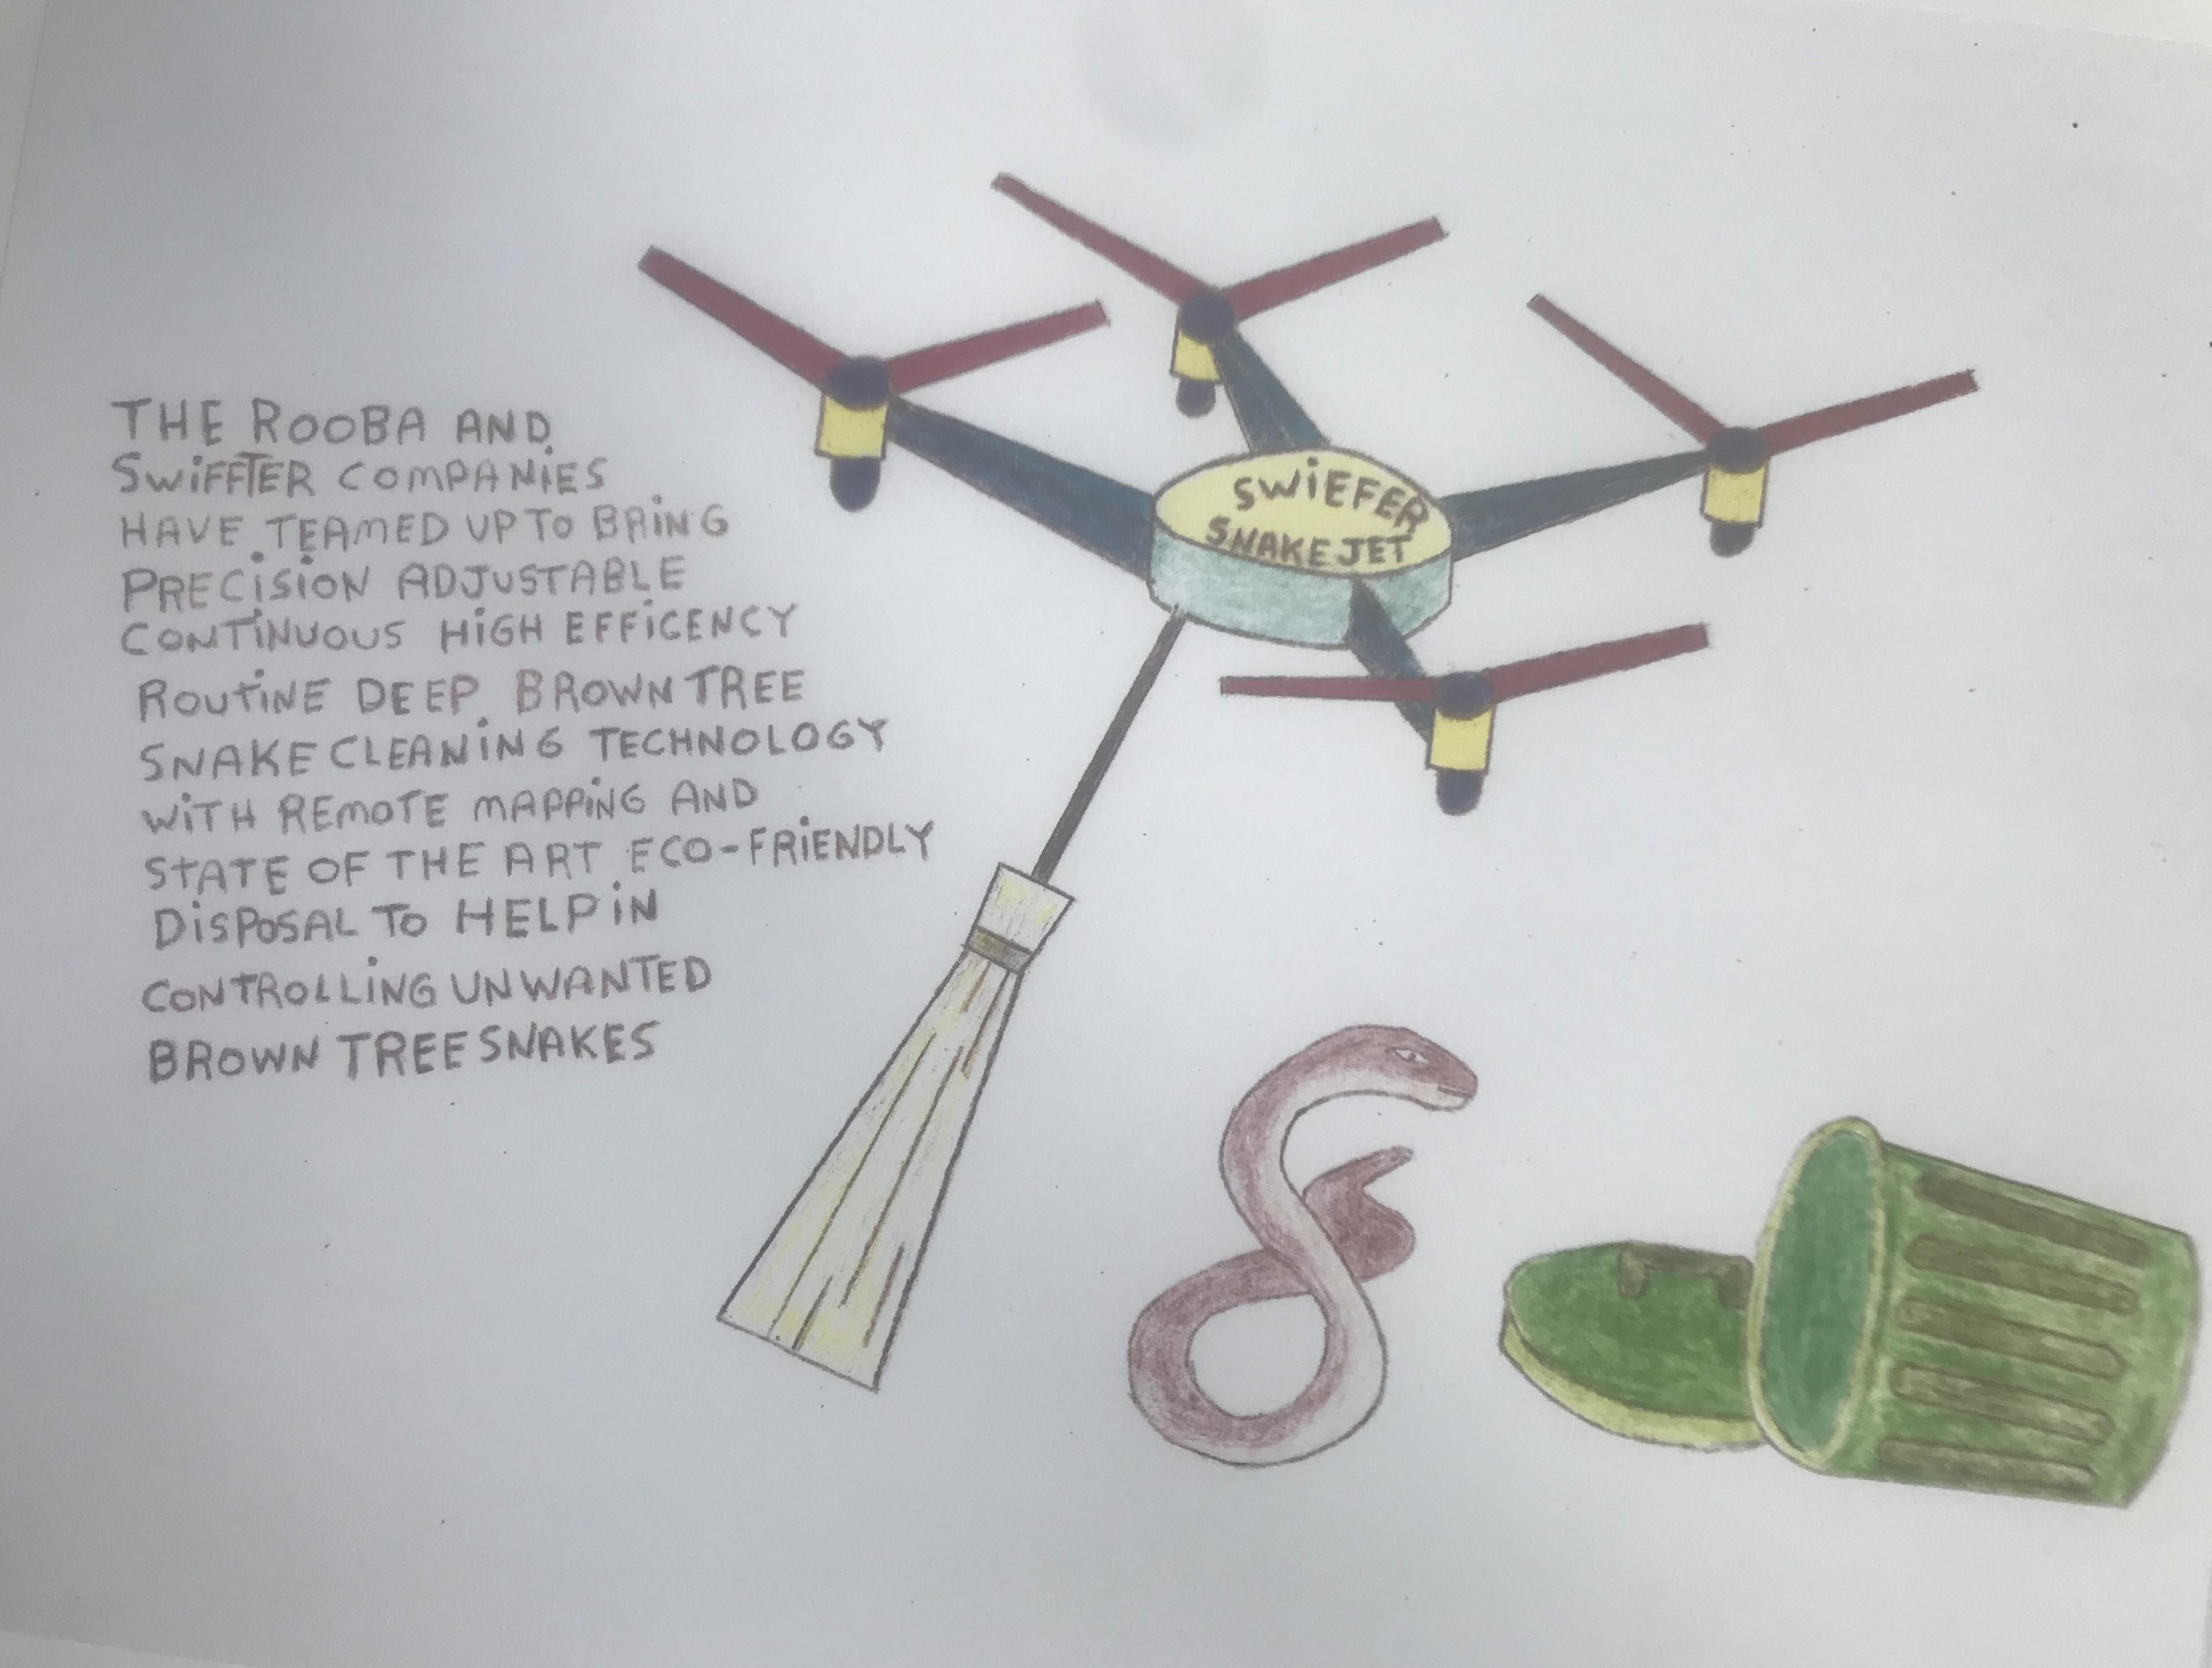 THE ROOBA AND
SWIFFTER COMPANIES
HAVE TEAMED UP TO BRING
PRECISION ADJUSTABLE
CONTINUOUS HIGH EFFICENCY
ROUTINE DEEP BROWN TREE
SNAKE CLEANING TECHNOLOGY
WITH REMOTE MAPPING AND
STATE OF THE ART ECO-FRIENDLY
DISPOSAL TO HELP IN
CONTROLLING UNWANTED
BROWN TREE SNAKES
SWIEFER
SNAKE JET